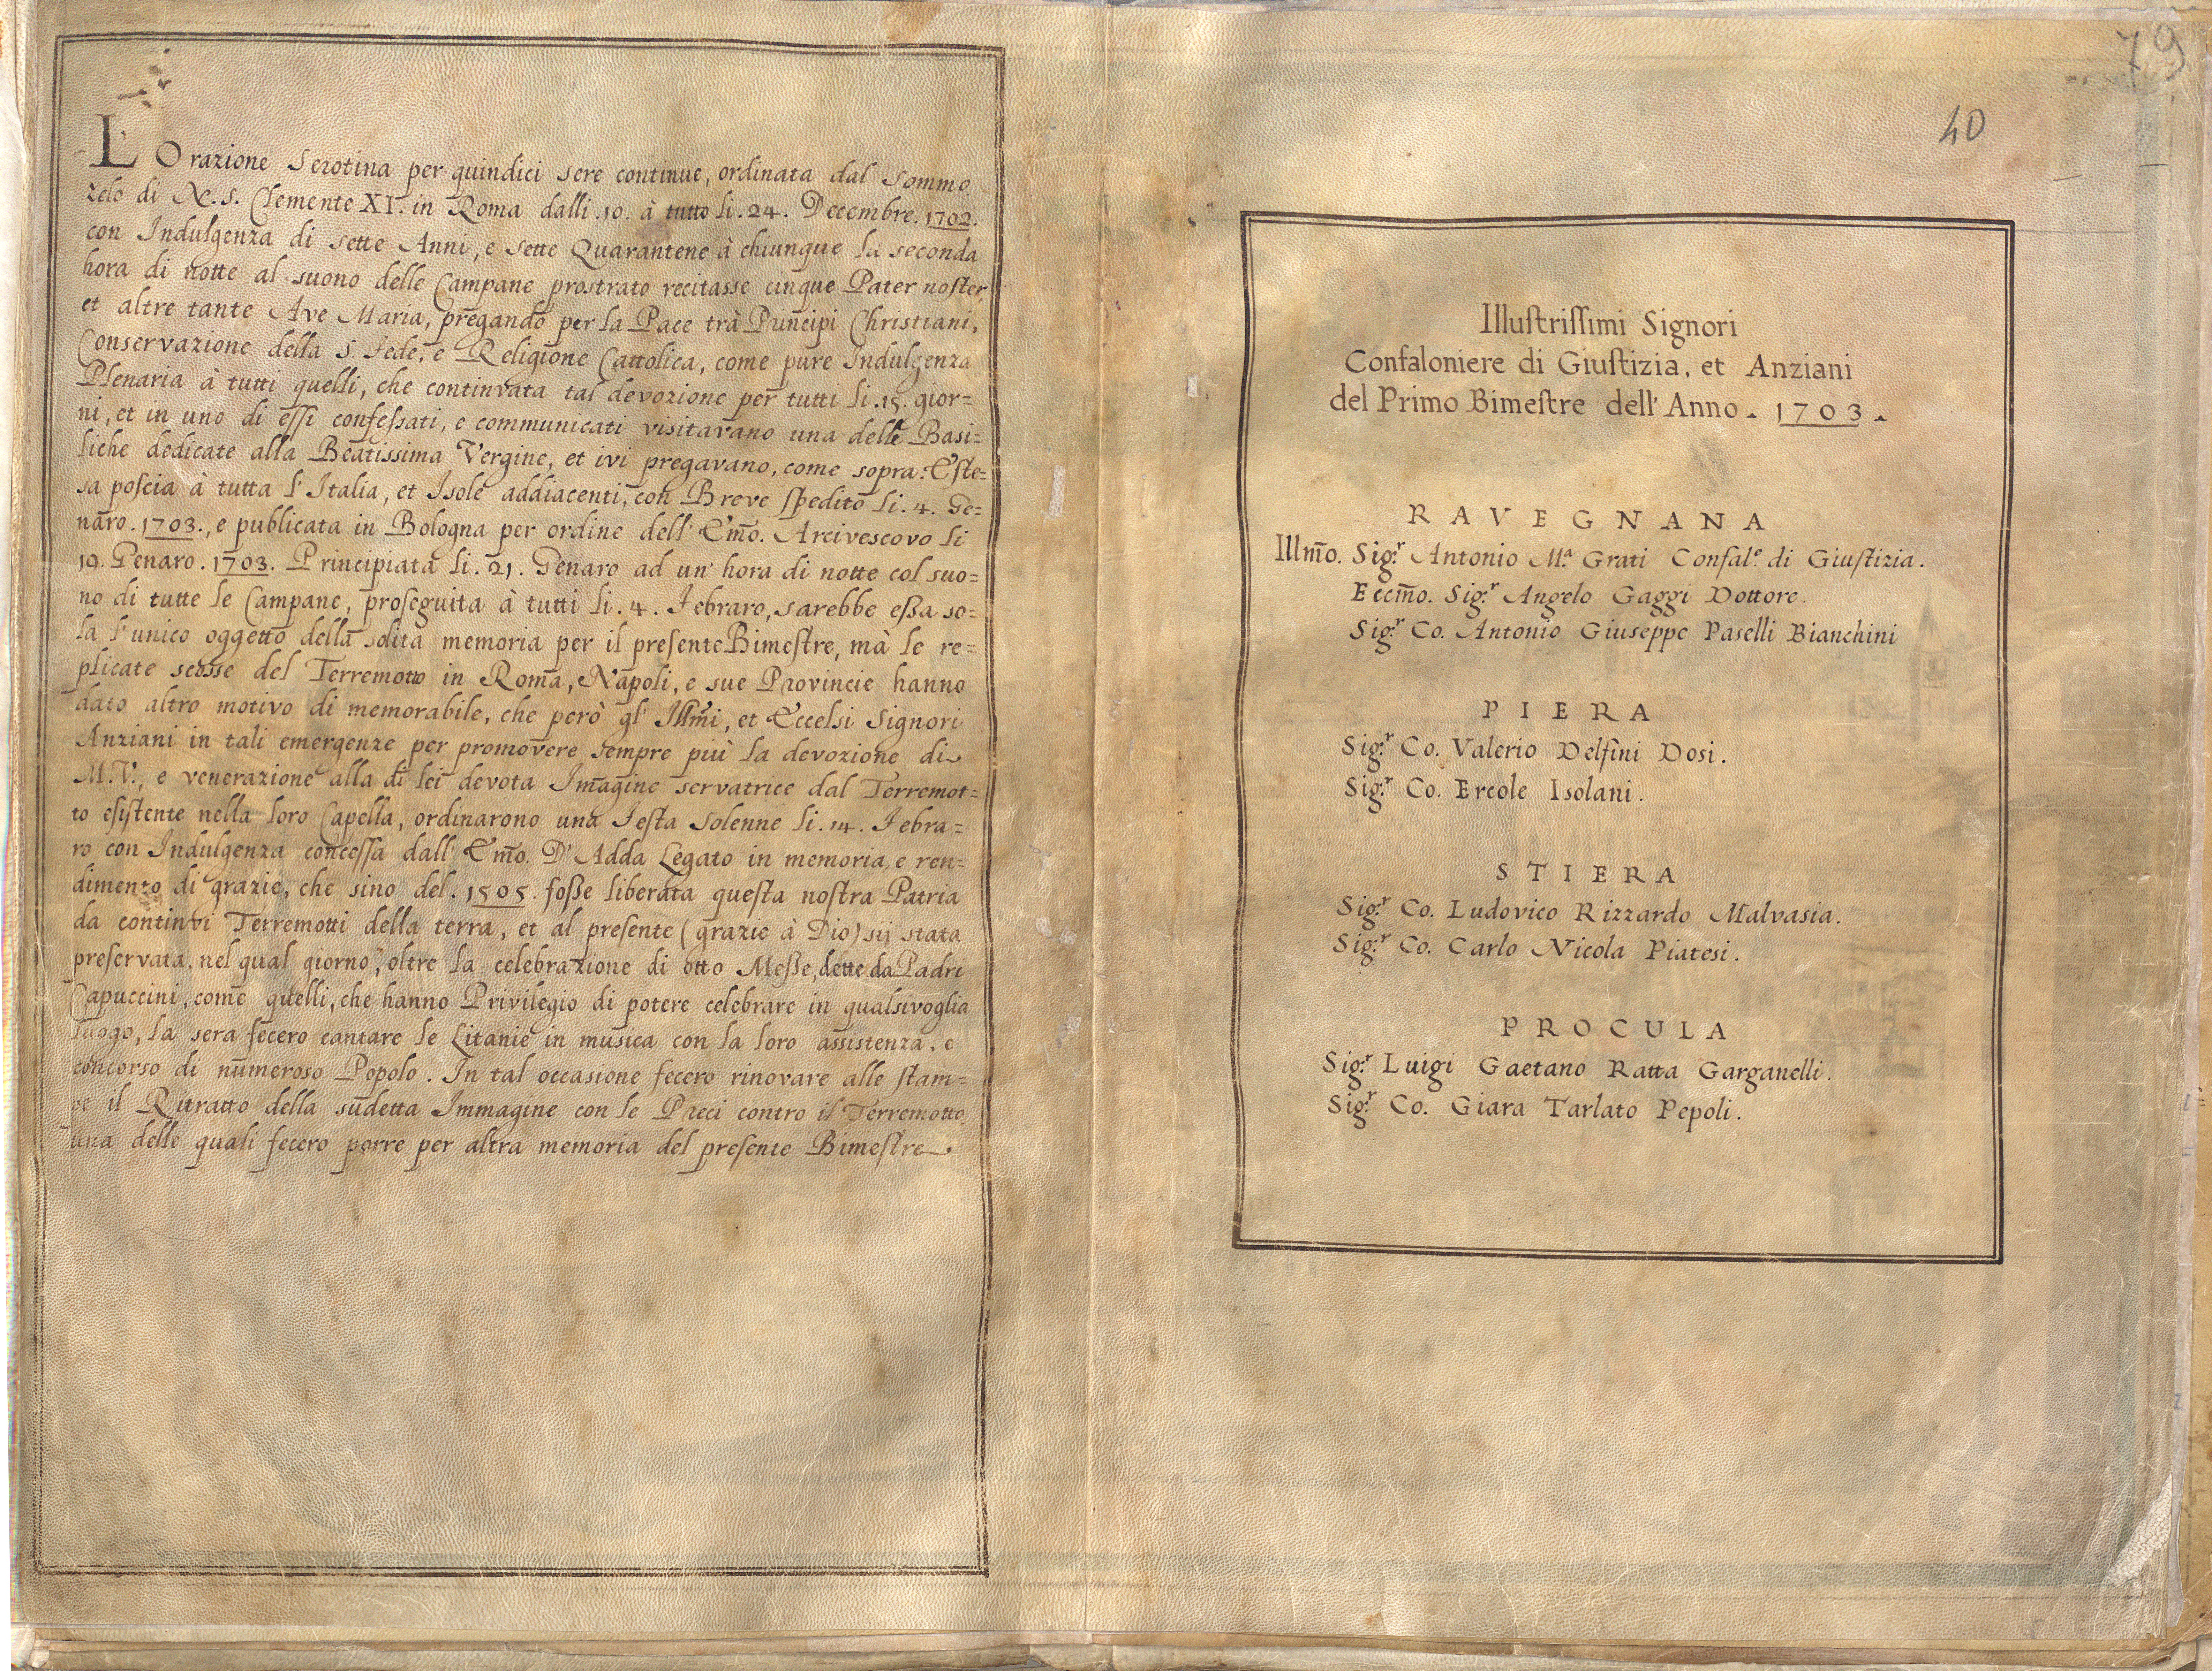 L'Orazione Serotina per quindici sere continue, ordinata dal Sommo
zelo di N. S. Clemente XI. in Roma dalli .10. à tutto li .24. Decembre .1702.
con Indulgenza di sette Anni, e sette Quarantene à chiunque la seconda
hora di notte al suono delle Campane prostrato recitasse cinque Pater noster,
et altre tante Ave Maria, pregando per la Pace trà Puncipi Christiani,
Conservazione della S. Fede, e Religione Cattolica, come pure Indulgenza
Plenaria à tutti quelli, che continvata tal devozione per tutti li .15. gior=
ni, et in uno di essi confessati, e communicati visitavano una delle Basi=
liche dedicate alla Beatissima Vergine, et ivi pregavano, come sopra: Este=
sa poscia à tutta l'Italia, et Isole addiacenti, con Breve spedito li .4. Ge=
naro .1703., e publicata in Bologna per ordine dell' Em̃o. Arcivescovo li
19. Genaro .1703. Principiata li .21. Genaro ad un' hora di notte col suo=
no di tutte le Campane, proseguita à tutti li .4. Febraro, sarebbe eßa so=
la l'unico oggetto della solita memoria per il presente Bimestre, mà le re=
plicate scosse del Terremotto in Roma, Napoli, e sue Provincie hanno
dato altro motivo di memorabile, che però gl' Illm̃i, et Eccelsi Signori
Anziani in tali emergenze per promovere sempre più la devozione di
M.V., e venerazione alla di lei devota Imagine servatrice dal Terremot=
to esistente nella loro Capella, ordinarono una Festa Solenne li .14. Febra=
ro con Indulgenza concessa dall' Em̃o. D'Adda Legato in memoria, e ren=
dimento di grazie, che sino del .1505. foße liberata questa nostra Patria
da continvi Terremotti della terra, et al presente (grazie à Dio) sij stata
preservata, nel qual giorno, oltre la celebrazione di otto Meße, dette da Padri
Capuccini, come quelli, che hanno Privilegio di potere celebrare in qualsivoglia
luogo, la sera fecero cantare le Litanie in musica con la loro assistenza, e
concorso di numeroso Popolo. In tal occasione fecero rinovare alle stam=
pe il Ritratto della sudetta Immagine con le Preci contro il Terremotto
una delle quali fecero porre per altra memoria del presente Bimestre
79
40
Illustrissimi Signori
Confaloniere di Giustizia, et Anziani
del Primo Bimestre dell' Anno . 1703 .
RAVEGNANA
Illm̃o. Sig.r Antonio M.a Grati Confal.e di Giustizia.
Eccm̃o. Sig.r Angelo Gaggi Dottore.
Sig.r Co. Antonio Giuseppe Paselli Bianchini
PIERA
Sig.r Co. Valerio Delfini Dosi.
Sig.r Co. Ercole Isolani.
STIERA
Sig.r Co. Ludovico Rizzardo Malvasia.
Sig.r Co. Carlo Nicola Piatesi.
PROCULA
Sig.r Luigi Gaetano Ratta Garganelli.
Sig.r Co. Giara Tarlato Pepoli.